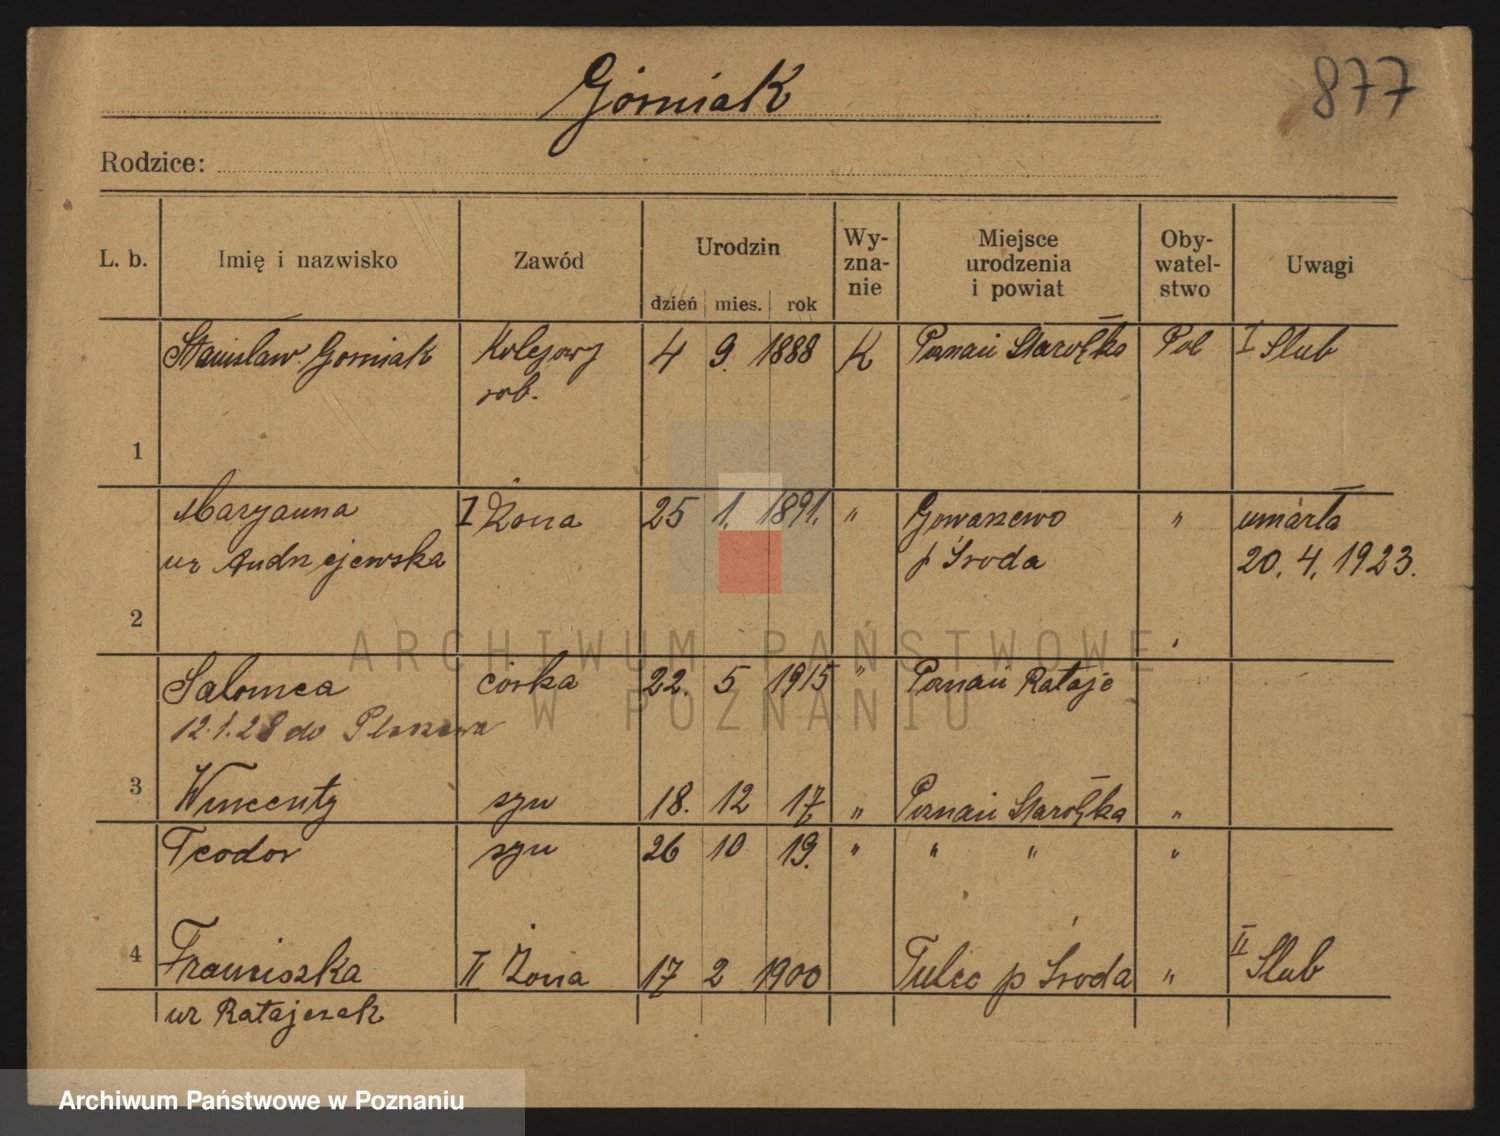 Górniak
877
Rodzice:
L. b. Imię i nazwisko Zawód Urodzin Wy-zna-nie Miejsce urodzenia i powiat Oby-watel-stwo Uwagi
dzień mies. rok
1 Stanisław Gorniak Kolejowy rob. 4 9. 1888 K Poznań Starołęka Pol I Slub
2 Maryanna I Żona 25 1. 1891. " Gowarzewo " umarła
ur Andrzejewska p Środa 20. 4. 1923.
3 Salomea córka 22. 5 1915 " Poznań Rataje
12.1.28 do
Wincenty syn 18. 12 17 " Poznań Starołęka "
Teodor syn 26 10 19. " " " "
4 Franciszka II Żona 17 2 1900 Tulec p Środa " II Slub
ur Ratajczak
ARCHIWUM PAŃSTWOWE
W POZNANIU
Archiwum Państwowe w Poznaniu